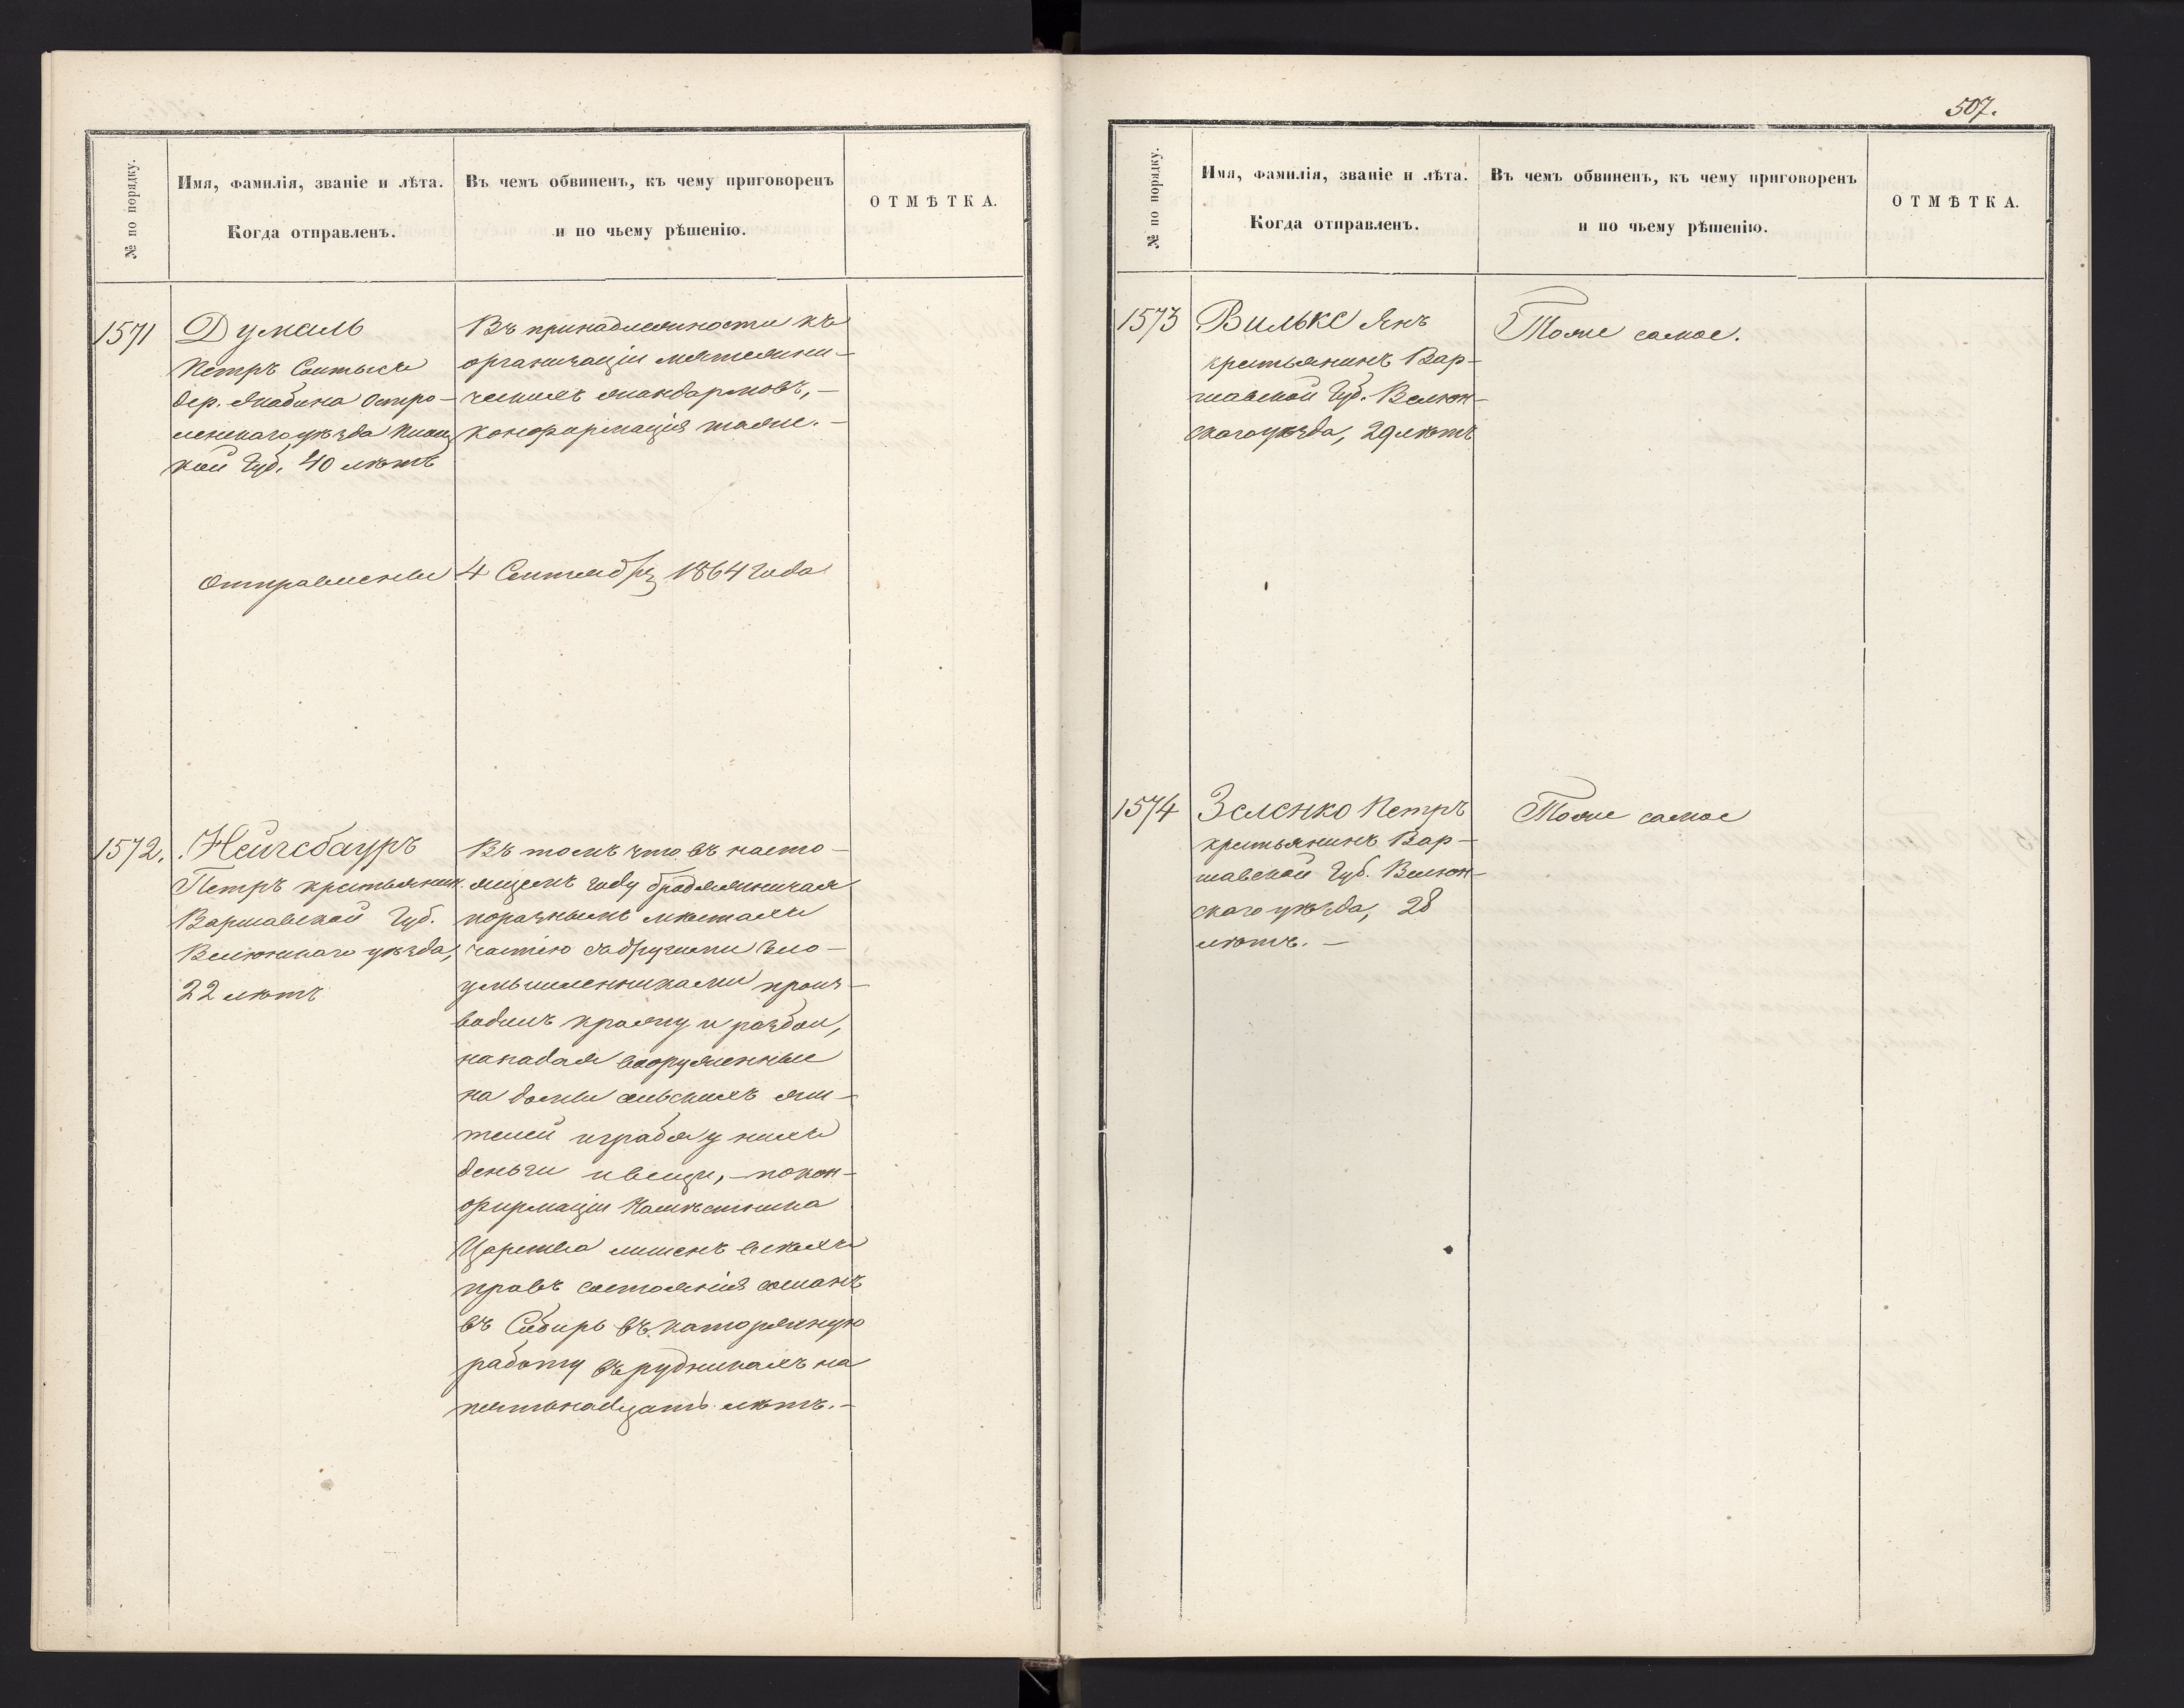 № по порядку.
Имя, фамилія, званіе и лѣта.
Когда отправленъ.
Въ чемъ обвиненъ, къ чему приговоренъ
и по чьему рѣшенію.
ОТМѢТКА.
1571
Думаль
Петръ Солтысъ
дер. Жабина Остро-
ленскаго уѣзда Плоц
кой Губ. 40 лѣтъ
Въ принадлежности къ
организаціи мятежни-
ческихъ жандармовъ, –
конфирмація таже. –
Отправлены 4 Сентября 1864 года
1572.
Нейгебауръ
Петръ крестьянин.
Варшавской Губ.
Велюнскаго уѣзда,
22 лѣтъ
Въ томъ что въ насто-
ящемъ году бродяжничая
по разнымъ мѣстамъ
частію съ другими зло-
умышленниками произ-
водилъ кражу и разбои,
нападая вооруженные
на домы сельскихъ жи-
телей и грабя у нихъ
деньги и вещи, – по кон-
фирмаціи Намѣстника
Царства лишенъ всѣхъ
правъ состоянія сосланъ
въ Сибирь въ каторжную
работу въ рудникахъ на
пятнадцать лѣтъ. –
507.
№ по порядку.
Имя, фамилія, званіе и лѣта.
Когда отправленъ.
Въ чемъ обвиненъ, къ чему приговоренъ
и по чьему рѣшенію.
ОТМѢТКА.
1573
Вильке Янъ
крестьянинъ Вар-
шавской Губ. Велюн-
скаго уѣзда, 29 лѣтъ
Тоже самое.
1574
Зеленко Петръ
крестьянинъ Вар-
шавской Губ. Велюн-
скаго уѣзда, 28
лѣтъ. –
Тоже самое